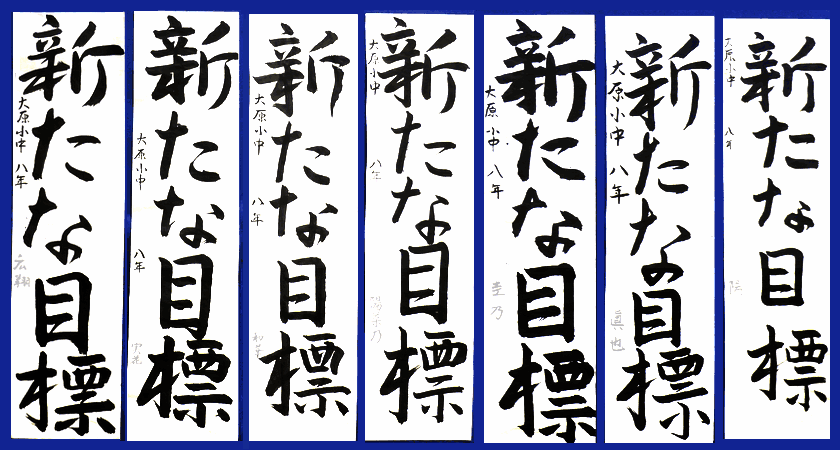 新たな目標
大原小中 八年
広翔
新たな目標
大原小中 八年
新たな目標
大原小中 八年
新たな目標
大原小中 八年
新たな目標
大原小中 八年
圭乃
新たな目標
大原小中 八年
眞也
新たな目標
大原小中 八年